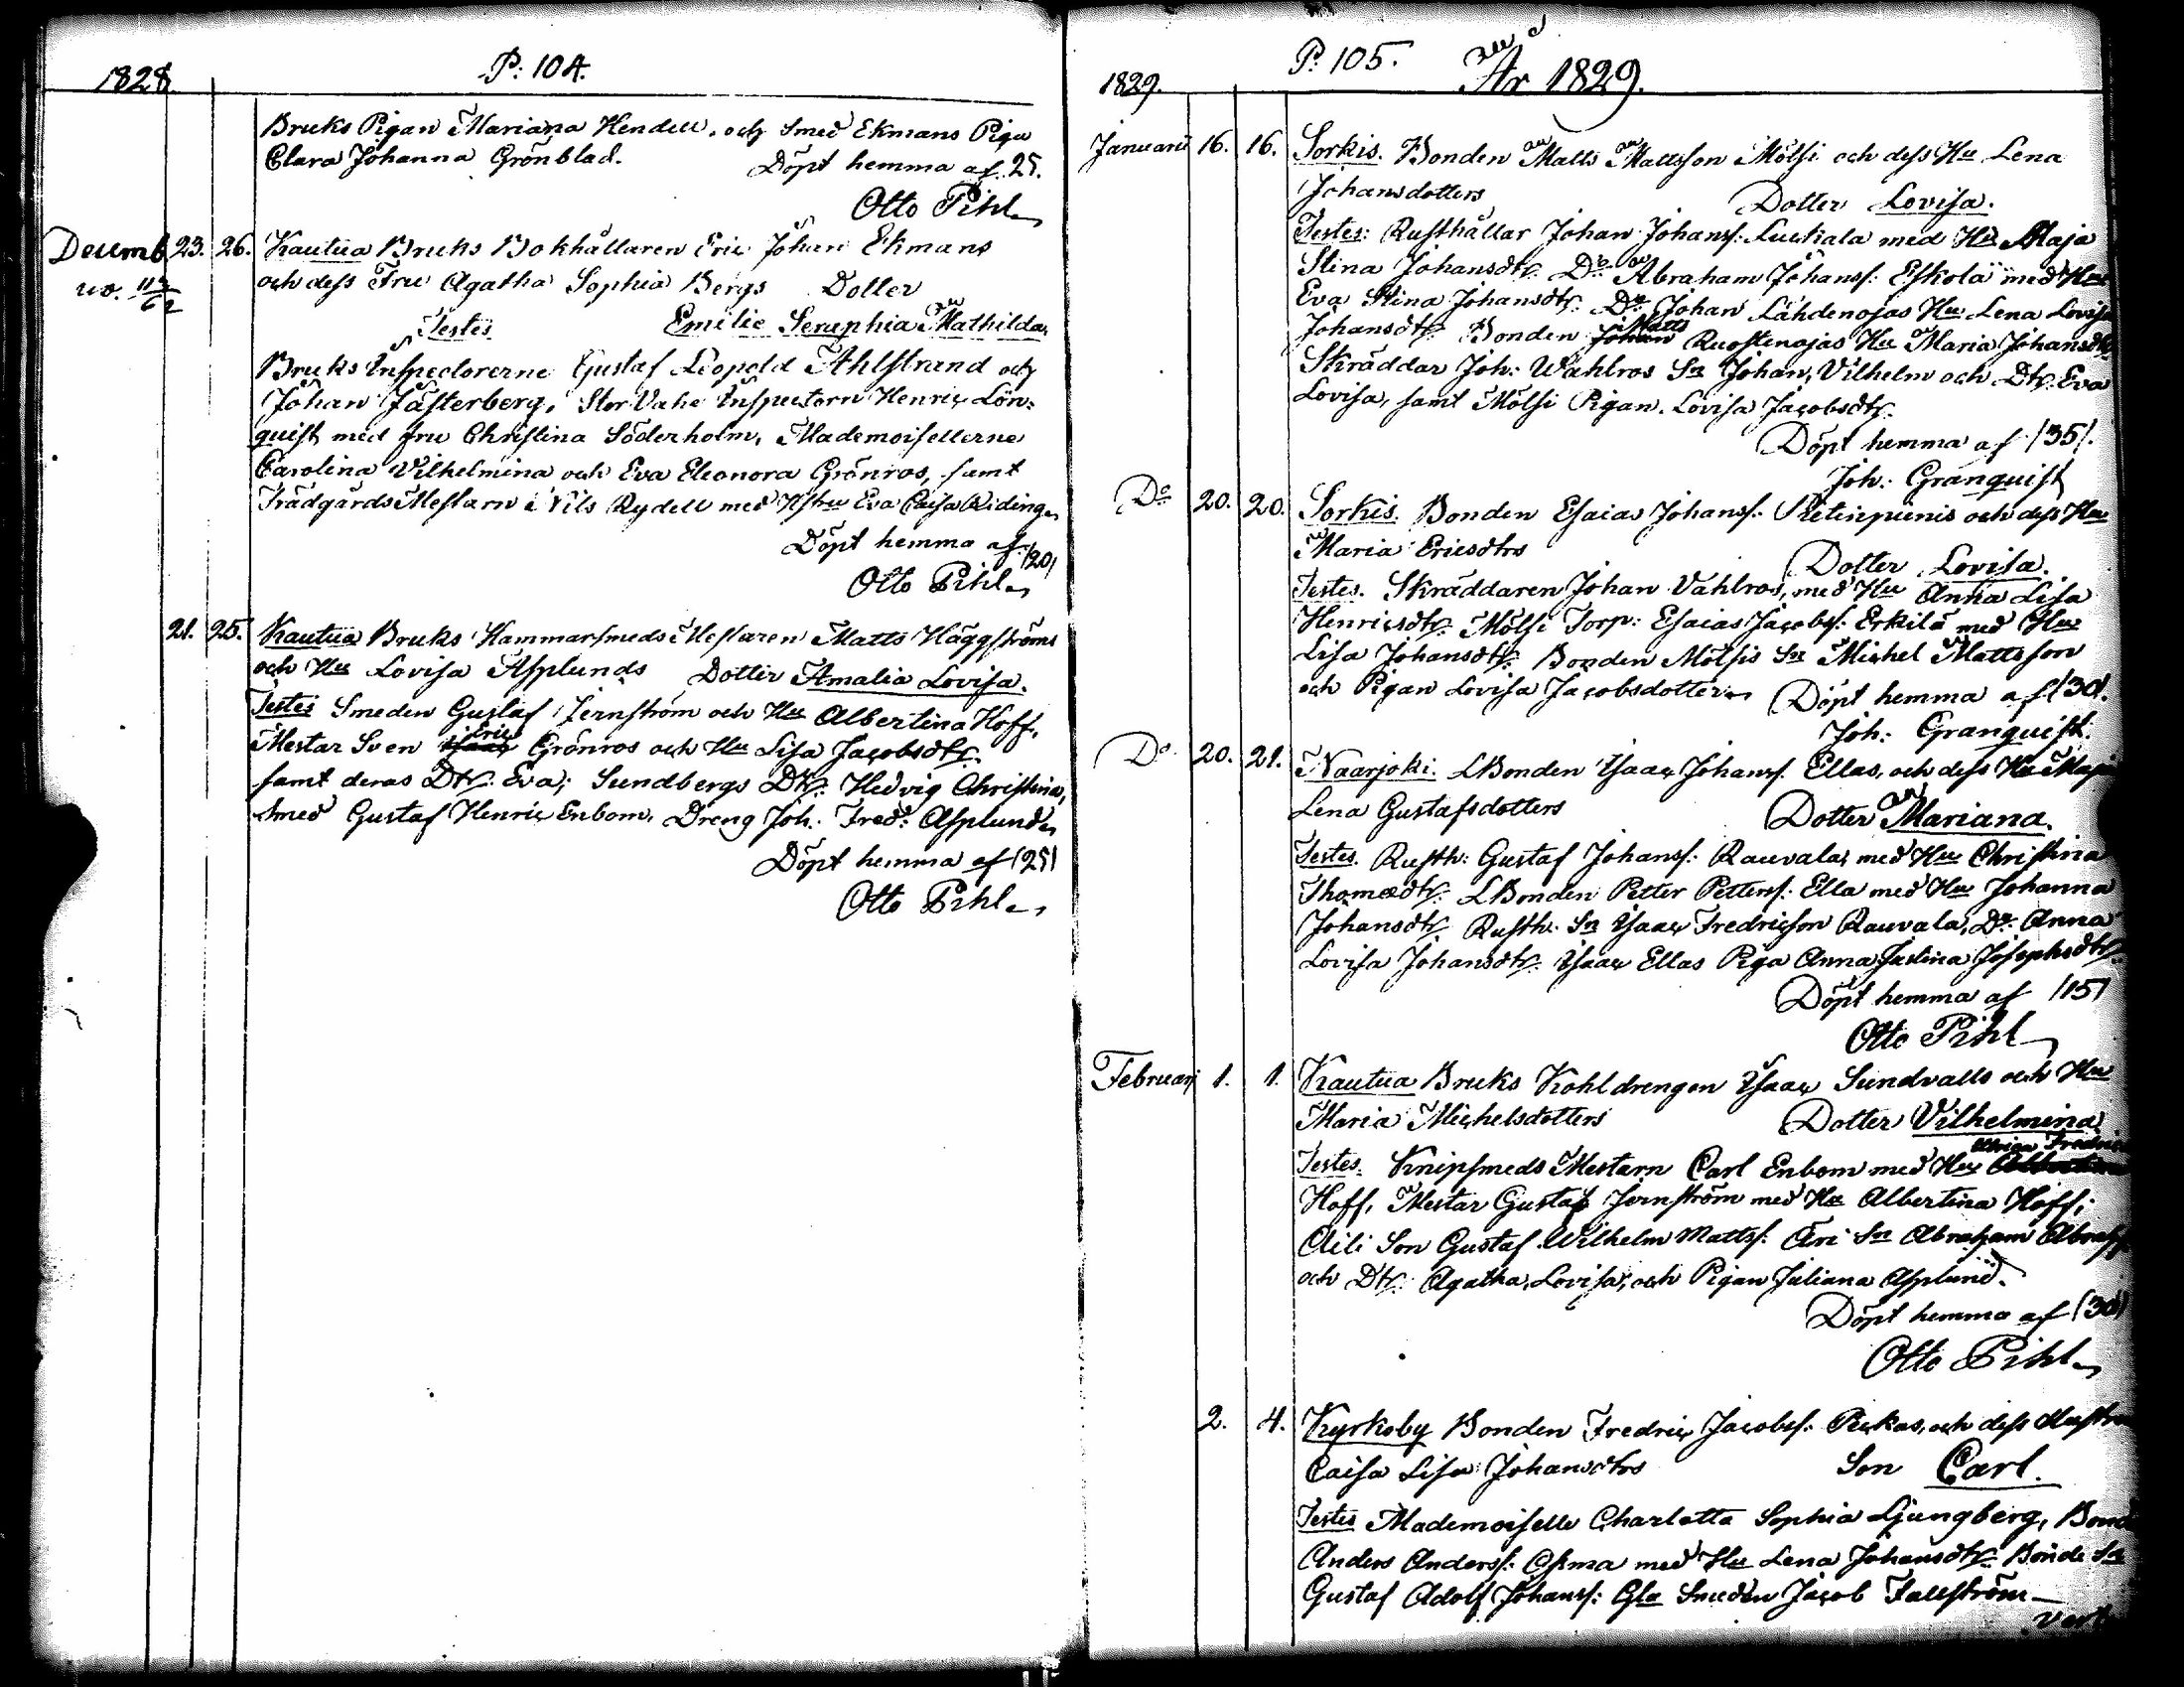 1828. P: 104.
Bruks Pigan Mariana Hendell, och Smed Ekmans Piga
Clara Johanna Grönblad. Döpt hemma af 25.
Otto Pihl
Decemb 23. 26. Kautua Bruks Bokhållaren Eric Johan Ekmans
och dess Fru Agatha Sophia Bergs Dotter
Testes Emilie Seraphia Mathilda
Bruks Inspectorerne Gustaf Leopold Ahlstrand och
Johan Fästerberg, Stor Vahe Inspectorn Henric Lön-
quist med fru Christina Söderholm, Mademoisellerne
Carolina Vilhelmina och Eva Eleonora Grönros, samt
Trädgårds Mestarn Nils Rydell med Hstru Eva Caisa Ridinge
Döpt hemma af /20/
Otto Pihl
21. 25. Kautua Bruks Hammarsmeds Mestaren Matts Häggströms
och Hu Lovisa Asplunds Dotter Amalia Lovisa.
Testes Smeden Gustaf Jernström och Hu Albertina Hoff,
Mestar Sven Eric Grönros och Hu Lisa Jacobsdtr
samt deras Dtr. Eva; Sundbergs Dtr: Hedvig Christina,
Smed Gustaf Henric Enbom, Dreng Joh. Fred: Asplund
Döpt hemma af /25/
Otto Pihl
1829. P: 105. År 1829.
Januarii 16. 16. Sorkis. Bonden Matts Mattsson Mölsi och dess Hu Lena
Johansdotters Dotter Lovisa.
Testes: Rusthållar Johan Johanss: Luckala med Hu Maja
Stina Johansdtr. Do Abraham Johanss: Eskola med Hu
Eva Stina Johansdtr. Do Johan Lähdenojas Hu Lena Lovisa
Johansdtr. Bonden Matts Ruostenojas Hu Maria Johansdtr
Skräddar Joh: Wahlros Sn Johan, Vilhelm och Dtr. Eva
Lovisa, samt Mölsi Pigan Lovisa Jacobsdtr.
Döpt hemma af /35/.
Joh: Granquist
Do 20. 20. Sorkis. Bonden Esaias Johanss: och dess Hu
Maria Ericsdtrs Dotter Lovisa.
Testes. Skräddaren Johan Vahlros, med Hu Anna Lisa
Henricsdtr. Mölsi Torp: Esaias Jacobss: Erkilä med Hu
Lisa Johansdtr. Bonden Mölsis Sn Michel Mattsson
och Pigan Lovisa Jacobsdotter Döpt hemma af /30/.
Joh: Granquist.
Do 20. 21. Naarjoki. LBonden Isaac Johanss. Ellas, och dess Hu Maja
Lena Gustafsdotters Dotter Mariana.
Testes. Rusth: Gustaf Johanss: Rauvala, med Hu Christina
Thomædtr. LBonden Petter Petterss: Ella med Hu Johanna
Johansdtr. Rusth. Sn Isaac Fredricsson Rauvala, Do Anna
Lovisa Johansdtr. Isaac Ellas Piga Anna Justina Josephsdtr.
Döpt hemma af /15/
Otto Pihl
Februari 1. 1. Kautua Bruks Kohldrengen Isaac Sundvalls och Hu
Maria Michelsdotters Dotter Vilhelmina
Testes. Knipsmeds Mestarn Carl Enbom med Hu Ulrica Fredrica
Hoff, Mestar Gustaf Jernström med Hu Albertina Hoff;
Aili Son Gustaf Wilhelm Mattss: Sn Abraham
och Dtr: Agatha Lovisa, och Pigan Juliana Asplund.
Döpt hemma af /30/
Otto Pihl
2. 4. Kyrkoby Bonden Fredric Jacobss: och dess Hustru
Caisa Lisa Johansdtrs Son Carl.
Testes Mademoiselle Charlotta Sophia Ljungberg, Bonde
Anders Anderss: med Hu Lena Johansdtr. Bonde Sn
Gustaf Adolf Johanss: Smeden Jacob Fallström
Vert.